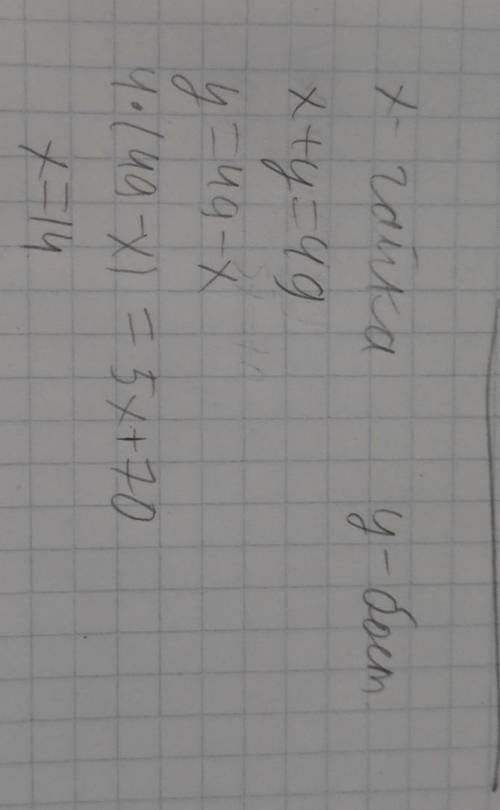 x- гайка y- болт
x+y=49
y=49-x
4·(49-x)=5x+70
x=14